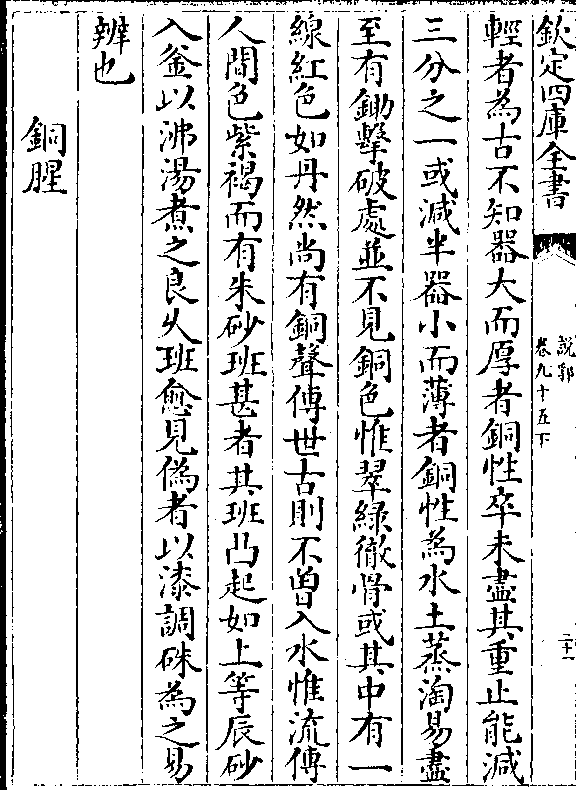 欽定四庫全書
說郛
卷九十五下
二十一
輕者為古不知器大而厚者銅性卒未盡其重止能減
三分之一或減半器小而薄者銅性為水土蒸淘易盡
至有鋤擊破處並不見銅色惟翠綠徹骨或其中有一
線紅色如丹然尚有銅聲傳世古則不曾入水惟流傳
人間色紫褐而有朱砂班甚者其班凸起如上等辰砂
入釜以沸湯煮之良久班愈見偽者以漆調硃為之易
辨也
銅腥